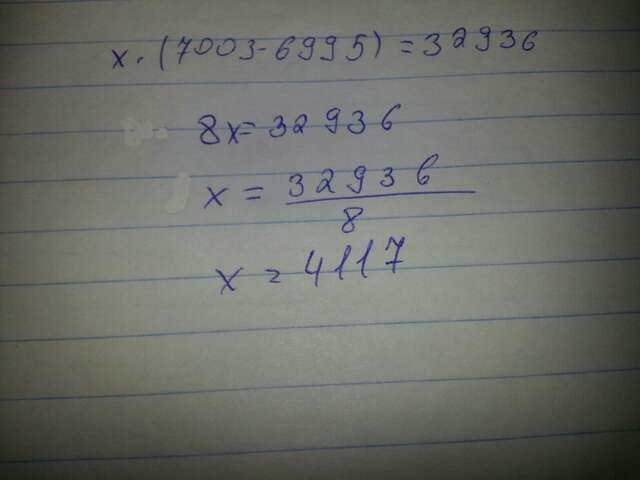 x · (7003-6995) = 32936
8x = 32936
x = 32936
8
x = 4117